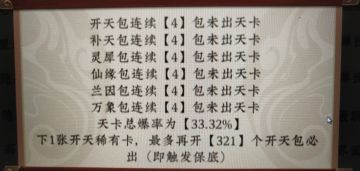 开天包连续【4】包未出天卡
补天包连续【4】包未出天卡
灵犀包连续【4】包未出天卡
仙缘包连续【4】包未出天卡
兰因包连续【4】包未出天卡
万象包连续【4】包未出天卡
天卡总爆率为【33.32%】
下1张开天稀有卡，最多再开【321】个开天包必
出（即触发保底）